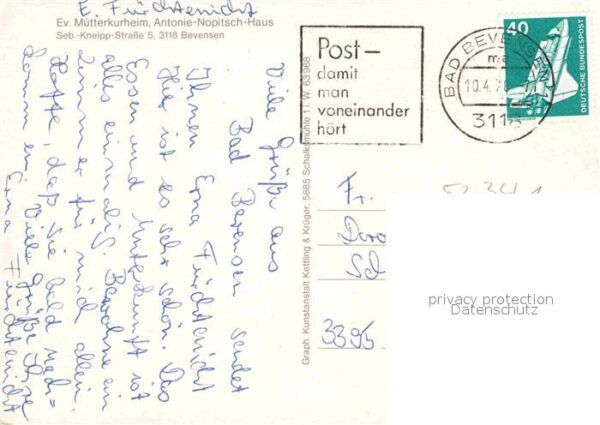 E. Fürchtenicht
Ev. Mütterkurheim, Antonie-Nopitsch-Haus
Seb.-Kneipp-Straße 5, 3118 Bevensen
Viele Grüße aus
Bad Bevensen sendet
Ihnen Erna Fürchtenicht
Hier ist es sehr schön. Das
Essen und Unterkunft ist
alles eindeutig. Bewohne ein
Zimmer für mich allein.
Hoffe, daß Sie bald nach-
kommen. Viele Grüße Ihre
Erna Fürchtenicht
Graph. Kunstanstalt Kettling & Krüger, 5885 Schalksmühle 1 i. W. 63968
Post–
damit
man
voneinander
hört
BAD BEVENSEN 1
ma
10.4.
311
40
DEUTSCHE BUNDESPOST
Fr.
Doro
Sch
3395
privacy protection
Datenschutz